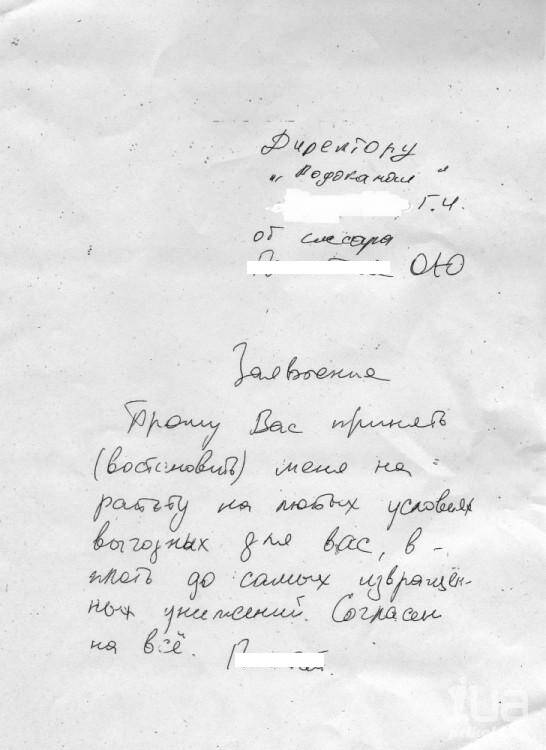 Директору
"Водоканал"
Г.И.
от слесаря
О.Ю
Заявление
Прошу Вас принять
(востановить) меня на
работу на любых условиях
выгодных для вас, в-
плоть до самых извращён-
ных унижений. Согласен
на всё. П
iua